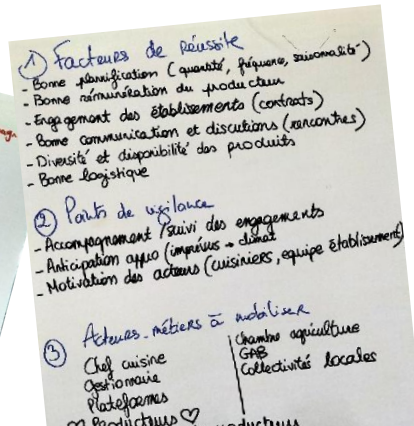 1) Facteurs de réussite
- Bonne planification (quantité, fréquence, saisonnalité)
- Bonne rémunération du producteur
- Engagement des établissements (contrats)
- Bonne communication et discutions (rencontres)
- Diversité et disponibilité des produits
- Bonne logistique
2) Points de vigilance
- Accompagnement / suivi des engagements
- Anticipation appro (imprévus → climat
- Motivation des acteurs (cuisiniers, equipe établissement)
3) Acteurs-métiers à mobiliser
Chef cuisine
Gestionnaire
Plateformes
♡ Producteurs ♡
Chambre agriculture
GAB
Collectivités locales